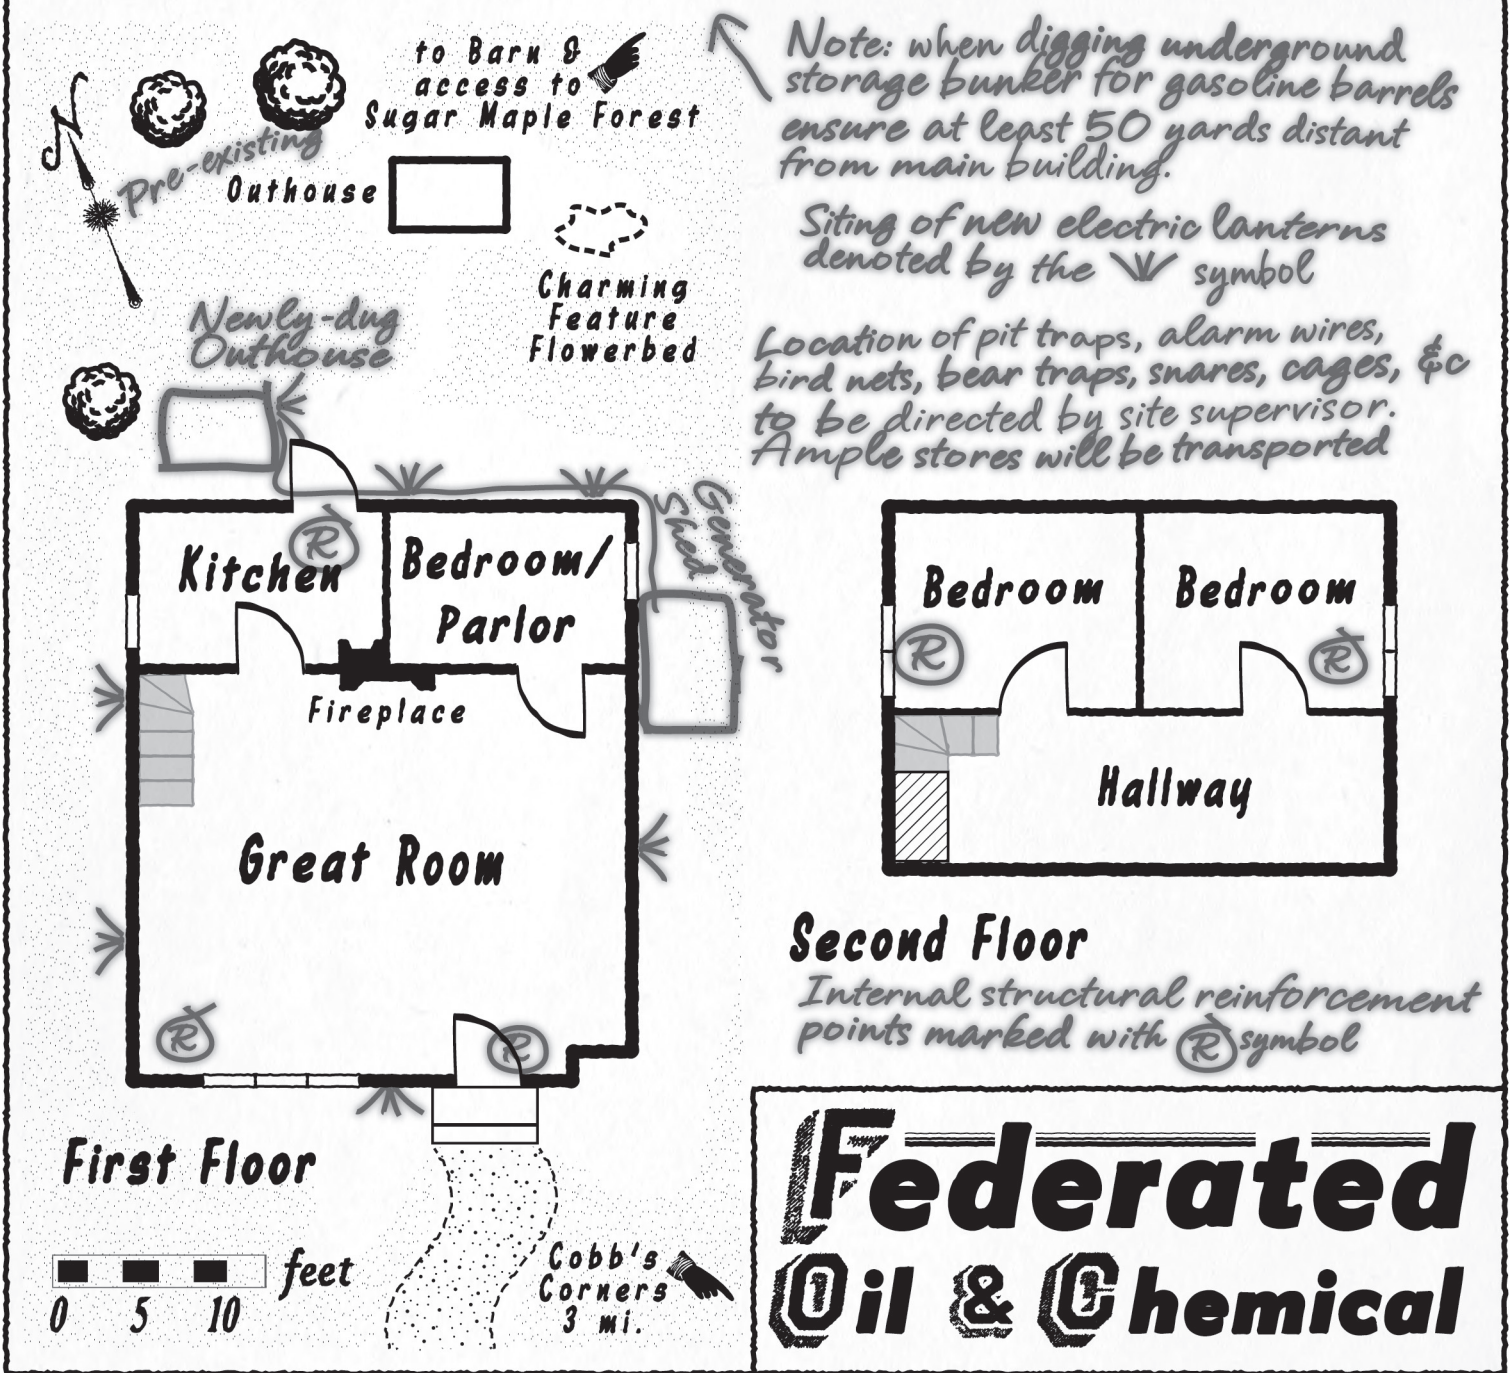 N
to Barn &
access to
Sugar Maple Forest
Pre-existing
Outhouse
Charming
Feature
Flowerbed
Newly-dug
Outhouse
Note: when digging underground
storage bunker for gasoline barrels
ensure at least 50 yards distant
from main building.
Siting of new electric lanterns
denoted by the symbol
Location of pit traps, alarm wires,
bird nets, bear traps, snares, cages, &c
to be directed by site supervisor.
Ample stores will be transported
Generator
Shed
R
Kitchen
Bedroom/
Parlor
Fireplace
Great Room
R
R
First Floor
feet
0 5 10
Cobb's
Corners
3 mi.
Bedroom
Bedroom
R
R
Hallway
Second Floor
Internal structural reinforcement
points marked with R symbol
Federated
Oil & Chemical